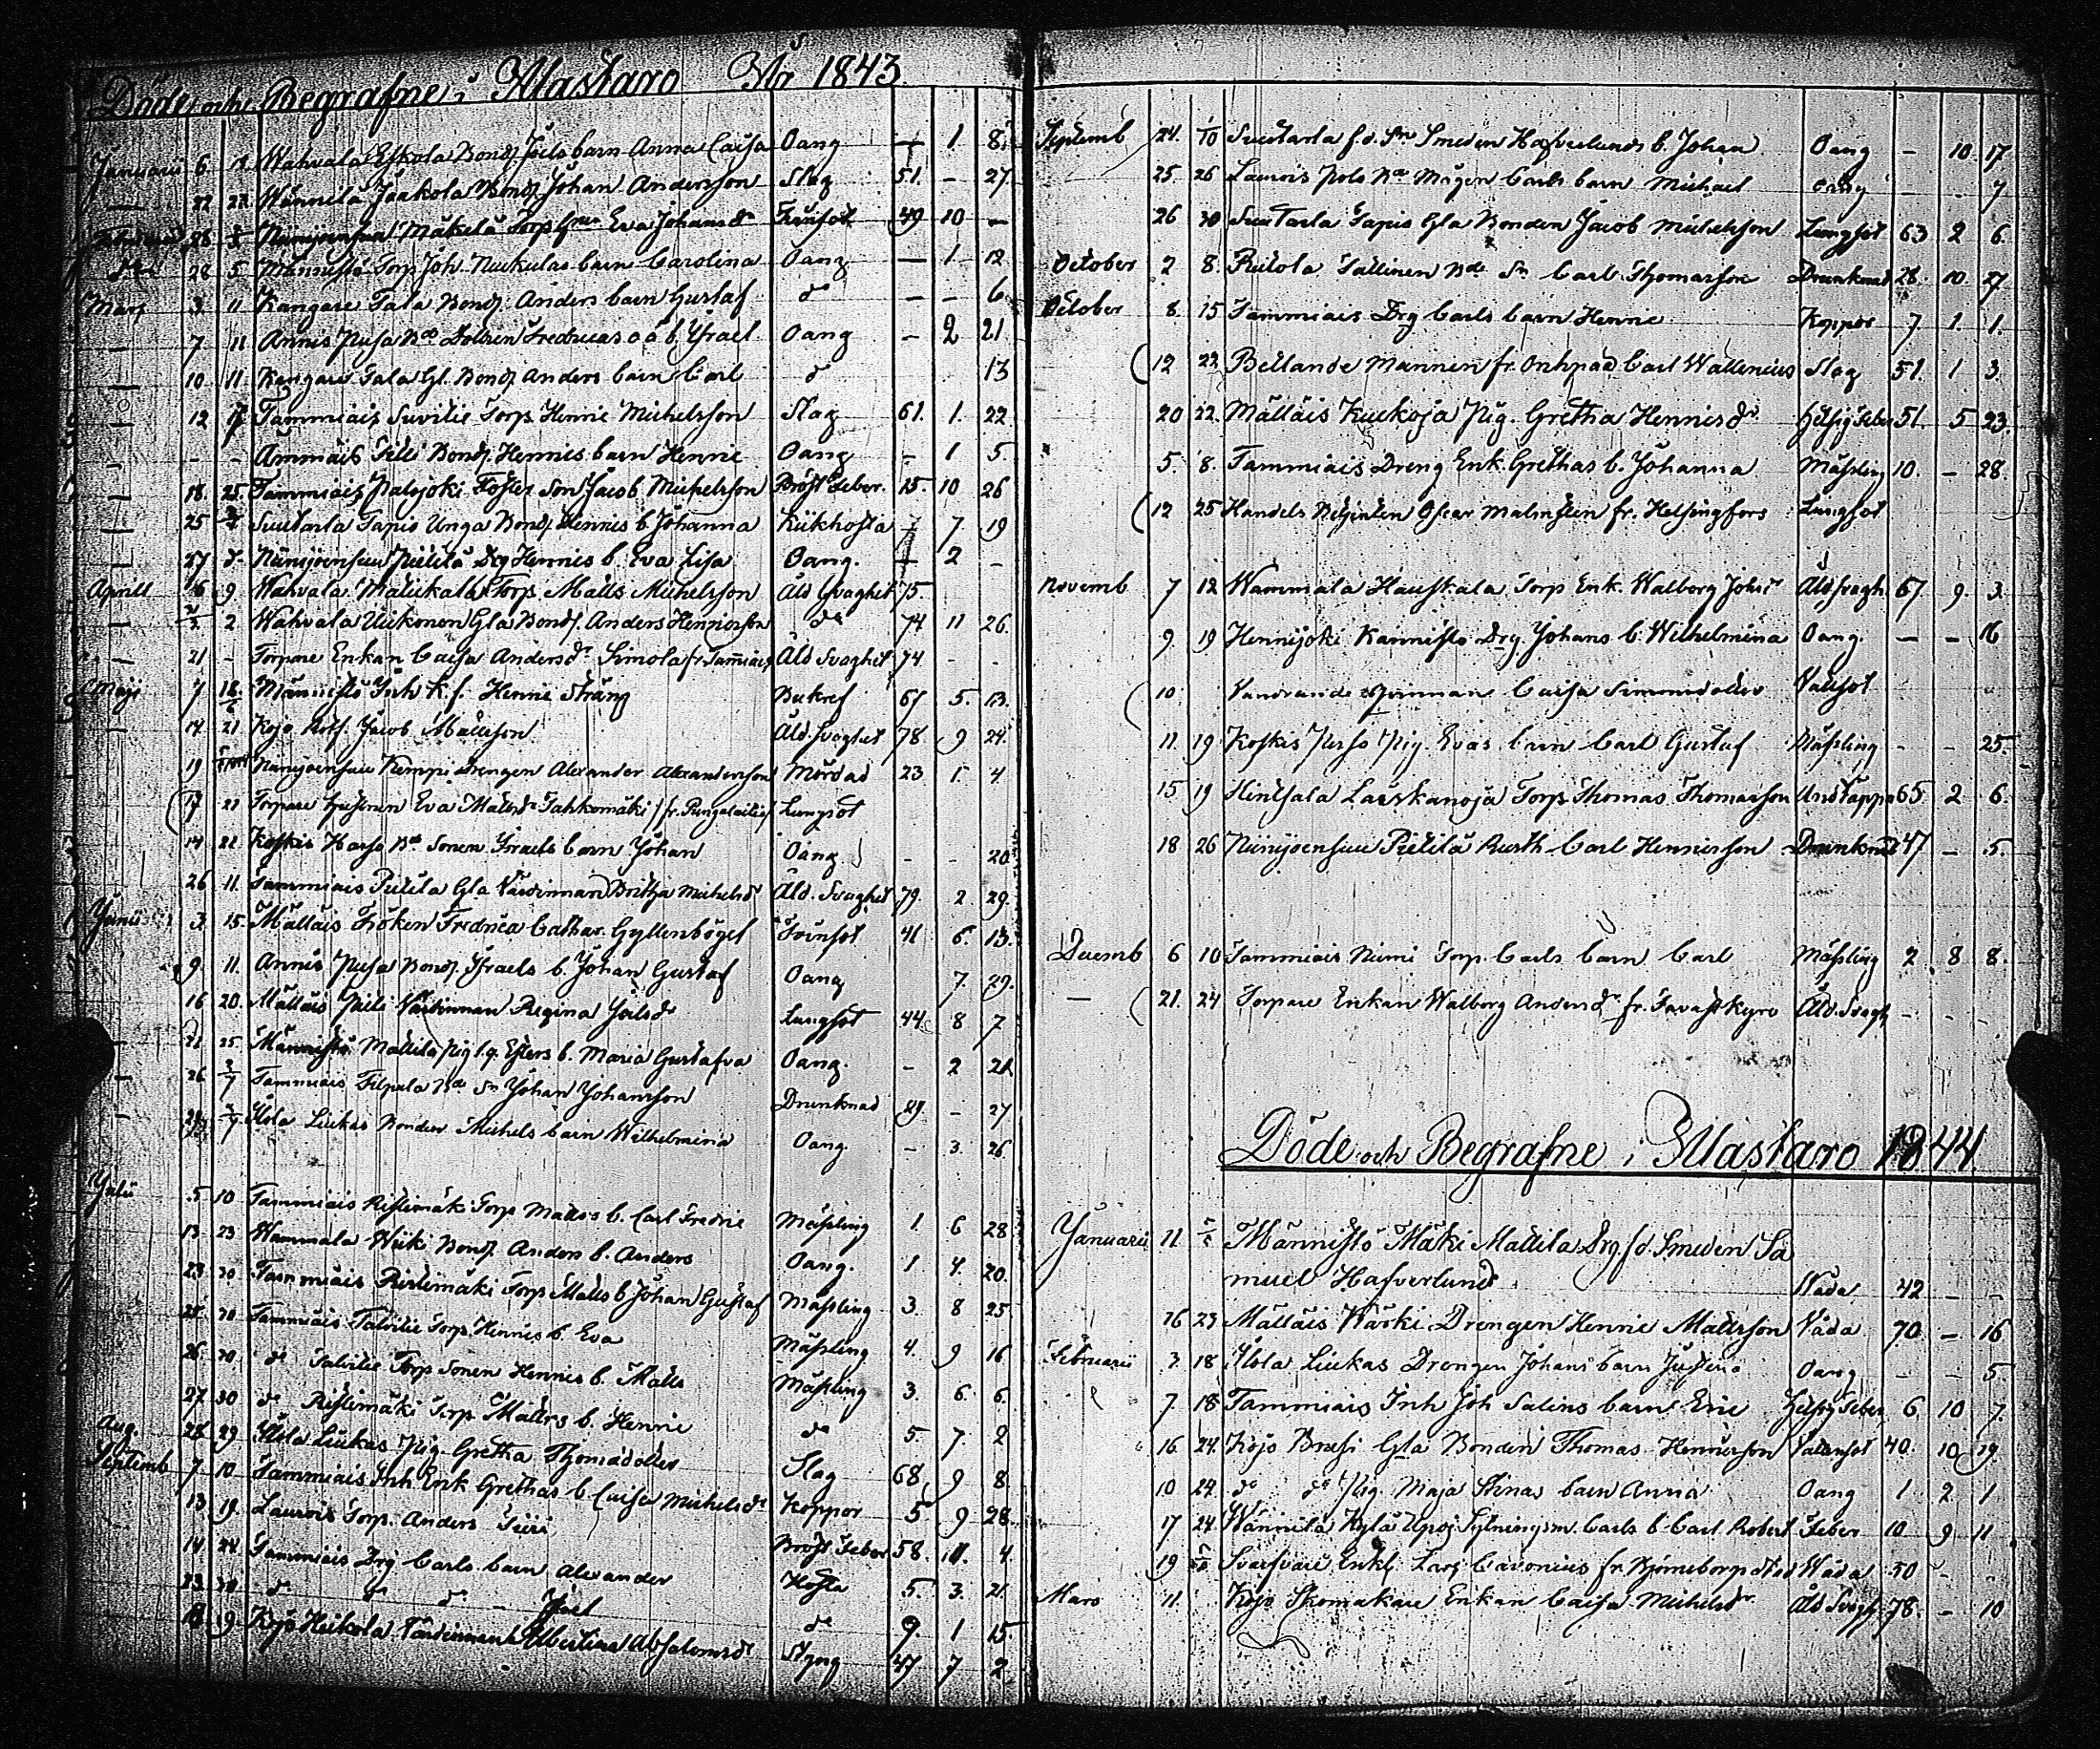 Döde och Begrafne i Alastaro År 1843
Januarii 6 Wahvala Eskola Bond. Joels barn Anna Caisa Oang – 1 8
– 22 27 Wännilä Jaakola Bond. Johan Andersson Slag 51 – 27
28 Mäkelä Torp. Eva Johansdr 49 10 –
28 5 Männistö Torp. Joh. barn Carolina Oang – 1 12
Mars 3 11 Kangare Tala Bond. Anders barn Gustaf do – – 6
– 7 11 Annis Pusa b. Israel Oang – 2 21
– 10 11 Kangare Tala Gl. Bond. Anders barn Carl do 13
– 12 17 Tammiais Suvilie Torp. Henric Michelsson Slag 61 1 22
– – – Ammäis Tilli Bond. Hennes barn Henric Oang – 1 5
– 18 25 Tammiais Palojoki Foster Son Jacob Michelsson Bröst Feber 15 10 26
– 25 Suutarla Tapio Unga Bond. Hennis b. Johanna Kikhosta – 7 19
– 27 d Niinijoensuu Pietilä Drg Hennis b. Eva Lisa Oang – 2 –
Aprill 16 9 Wahvala Torp. Matts Michelsson Åld Svaghet 75
– 2 Wahvala Uikonen Gla Bond. Anders Henricsson do 74 11 26
– 21 – Torpare Enkan Caisa Andersdr Simola fr. Tammiais Åld Svaghet 74 – –
Maji 7 Männistö Inh. k. f. Henric Sträng 67 5 13
– 14 21 Kojo Rotf. Jacob Mattsson Åld. Svaghet 78 9 24
19 Niinijoensuu Kemppi Drengen Alexander Alexandersson Mördad 23 1 4
17 22 Torpare Hustrun Eva Mattsdr Tahkomäki fr. Pungalaitio Lungsot
14 22 Koskis Harso Bd Sonen Israels barn Johan Oang – – 20
26 11 Tammiais Pietilä Gla Värdinnan Britha Michelsdr Åld. Svaghet 79 2 29
Junii 3 15 Mällais Fröken Fredrica Cathar. Gyllenbögel Tvinsot 41 6 13
9 11 Annis Pusa Bond. Israels b. Johan Gustaf Oang 7 29
16 20 Mällais Värdinnan Regina Joelsdr Lungsot 44 8 7
– 21 25 Männistö Mattila Pig. Esters b. Maria Gustafva Oang – 2 21
– 26 3/7 Tammiais Filpula Bd Sn Johan Johansson Drunknad 29 – 27
– Ilola Liukas Bonden Michels barn Wilhelmina Oang – 3 26
Julii 5 10 Tammiais Ristimäki Torp. Matts's b. Carl Fredric Mässling 1 6 28
13 23 Wammala Wiiki Bond. Anders b. Anders Oang 1 4 20
23 30 Tammiais Ristimäki Torp. Matts b. Johan Gustaf Mässling 3 8 25
25 30 Tammiais Talvitie Torp. Hennis b. Eva Mässling 4 9 16
26 30 do Talvitie Torp. Sonen Hennis b. Matts Mässling 3 6 6
27 30 do Ristimäki Torp. Matts b. Henric do 5 7 2
Aug. 28 29 Liukas Pig. Gretha Thomædotter Slag 68 9 8
Septemb 7 10 Tammiais Inh. Enk. Grethas b. Caisa Michelsdr Koppor 5 9 28
13 19 Laurois Torp. Anders Bröst Feber 58 11 4
14 24 Tammiais Drg Carls barn Alexander Hosta 5 3 21
23 30 do do do – Joel do 9 1 15
18 9 Kojo Heikola Värdinnan Albertina Absalomsdr Styng 47 7 2
Septemb 24 Suutarla f. d. Sn Smeden Hafverlunds b. Johan Oang – 10 17
25 26 Laurois Polo Bd Mågen Carls barn Michael Oang – – 7
26 30 Suutarla Tapio Gla Bonden Jacob Michelsson Lungsot 63 2 6
October 2 8 Riitola Tallinen Bde Sn Carl Thomasson Drunknad 28 10 27
October 8 15 Tammiais Drg Carls barn Henric Koppor 7 1 1
12 22 Betlande Mannen fr. Carl Wallenius Slag 51 1 3
20 22 Mällais Kuckoja Pig. Gretha Hennesdr Hetsig Feber 51 5 23
5 8 Tammiais Dreng Enk. Grethas b. Johanna Mässling 10 – 28
12 25 Handels Betjenten Oscar Malmsten fr. Helsingfors Lungsot
Novemb 7 12 Wammala Hauskala Torp Enk. Walborg Åld. svagh. 67 9 3
9 19 Hennijoki Kannisto Drg Johans b. Wilhelmina Oang – – 16
10 Vandrande qvinnan Caisa Simonsdotter
11 19 Koskis Perso Pig. Evas barn Carl Gustaf Mässling – – 25
15 19 Hintsala Laiskanoja Torp. Thomas Thomasson Andtäppa 65 2 6
18 26 Niinijoensuu Pietilä Rusth. Carl Henricsson Drunknad 47 – 5
Decemb 6 10 Tammiais Niemi Torp. Carls barn Carl Mässling 2 8 8
– 21 24 Torpare Enkan Walborg Andersdr fr. Tavastkyro Åld. Svagh – – –
Döde och Begrafne i Alastaro 1844
Januarii 11 Männistö Mäki Mattila Drg. f. d. Smeden Sa
muel Hafverlund Wåda 42 – –
16 23 Mällais Kärki Drengen Henric Mattsson Våda 70 – 16
Februarii 3 18 Ilola Liukas Drengen Johans barn Justina Oang – – 5
7 18 Tammiais Inh. Joh. Salins barn Eric Hetsig Feber 6 10 7
16 24 Kojo Brusi Gla Bonden Thomas Henricsson Vattensot 40 10 19
10 24 do do Pig. Maja Stinas barn Anna Oang 1 2 1
17 24 Wännilä Kylä Uproj. Sytningsm. Carls b. Carl Robert Feber 10 9 11
19 Svarfvare Enk. Cavonius fr. Björneborgs stad Wåda 50 – –
Mars 11 Kojo Skomakare Enkan Caisa Michelsdr Åld Svagh 78 – 10